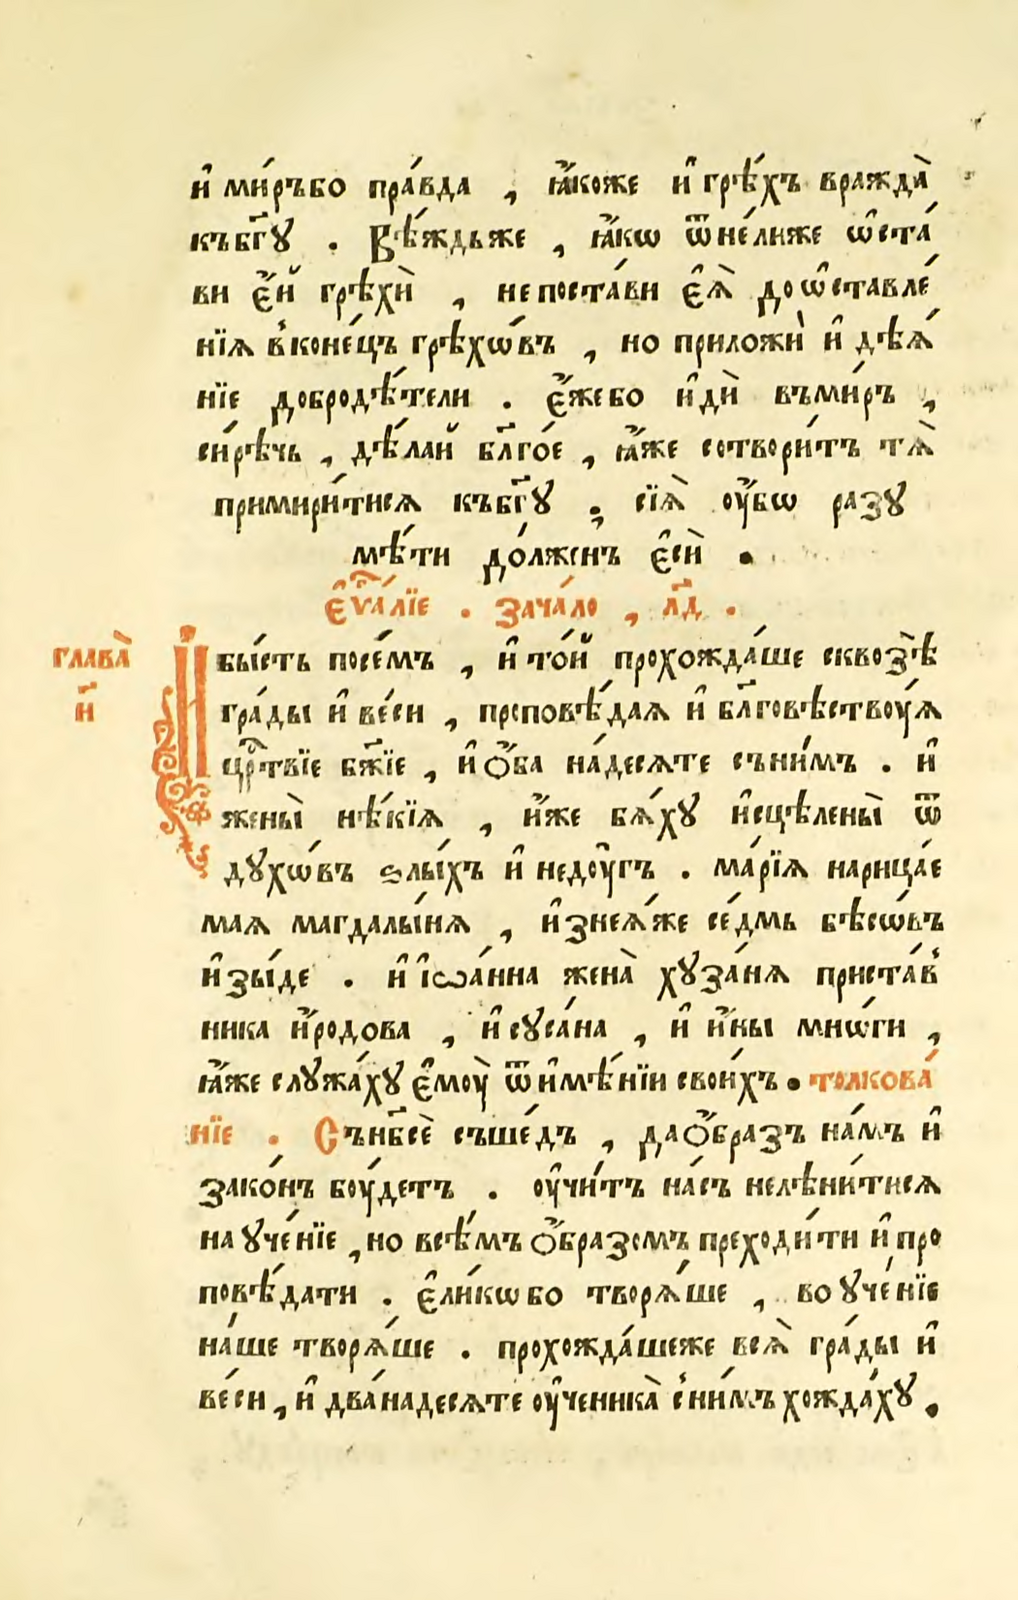 и҆ ми́ръбо пра́вда , ꙗ҆́коже и҆ грѣ́хъ враждА̀
къбг҃ꙋ . Вѣ́ждьже , ꙗ҆́кѡ ѿне́лиже ѡ҆ста́
ви є҆́й грѣхѝ , непоста́ви є҆ѧ̀ доѡ҆ставле́
нїѧ в̾коне́цъ грѣхѡ́въ , но приложѝ и҆ дѣѧ́
нїе добродѣ́тели . є҆́жебо и҆дѝ въми́ръ ,
си́рѣчь , дѣ́лай бл҃го́е , ꙗ҆́же сотвори́тъ тѧ̀
примири́тисѧ къбг҃ꙋ ; сїѧ̀ оу҆́бѡ разꙋ
мѣ́ти до́лженъ є҆сѝ .
є҆ѵⷢ҇а́лїе . зача́ло , л҃д .
глава̀
и҃
И҆бы́сть посе́мъ , и҆ то́й прохожда́ше сквозѣ̀
гра́ды и҆ ве́си , проповѣ́даѧ и҆ бл҃говѣствоу́ѧ
црⷭ҇твїе бж҃їе , и҆ ѻ҆́ба на́десѧте съни́мъ . и҆
жены̀ нѣ́кїѧ , и҆́же бѧ́хꙋ и҆сцѣлены̀ ѿ
дꙋхѡ́въ ѕлы́хъ и҆ недоу҆́гъ . ма́рїѧ нарица́е
маѧ магдалы́нѧ , и҆знеѧ́же се́дмь бѣсѡ́въ
и҆зы́де . и҆ і҆ѡа́нна жена̀ хꙋза́нѧ приста́в̾
ника и҆́родова , и҆ сꙋса́на , и҆ и҆́ны мнѡ́ги ,
ꙗ҆́же слꙋжа́хꙋ є҆моу̀ ѿ и҆мѣ́нїи свои́хъ . толкова́
нїе . Сънб҃сѐ съше́дъ , да ѻ҆́бразъ на́мъ и҆
зако́нъ боу́детъ . оу҆чи́тъ на́съ нелѣни́тисѧ
на ꙋче́нїе , но всѣ́мъ ѻ҆́бразомъ преходи́ти и҆ про
повѣ́дати . є҆ли́кѡбо творѧ́ше , во ꙋче́нїе
на́ше творѧ́ше . прохожда́шеже всѧ̀ гра́ды и҆
ве́си , и҆ два́надесѧте оу҆ченика̀ с̾ни́мъ хожда́хꙋ .